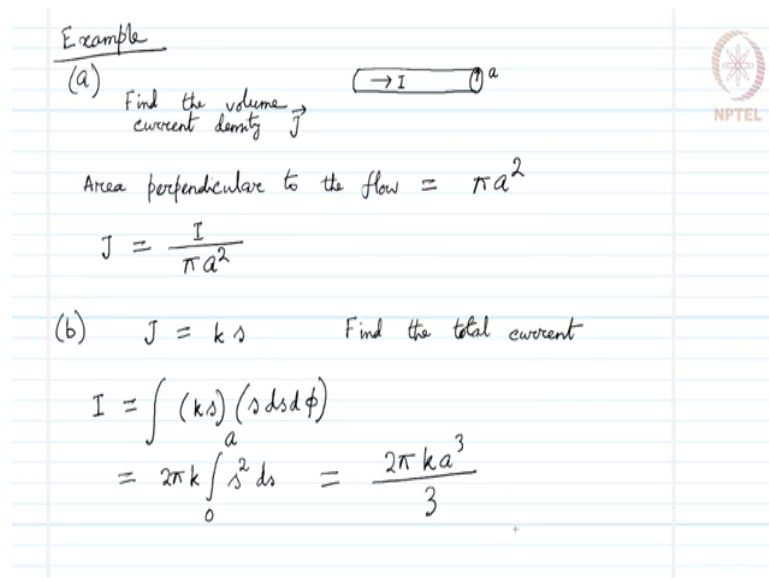 Example
(a)
→ I a
NPTEL
Find the volume
current density J⃗
Area perpendicular to the flow = πa²
J = I / πa²
(b) J = k s Find the total current
I = ∫ (ks) (s ds dϕ)
= 2πk ∫₀ᵃ s² ds = 2πka³ / 3